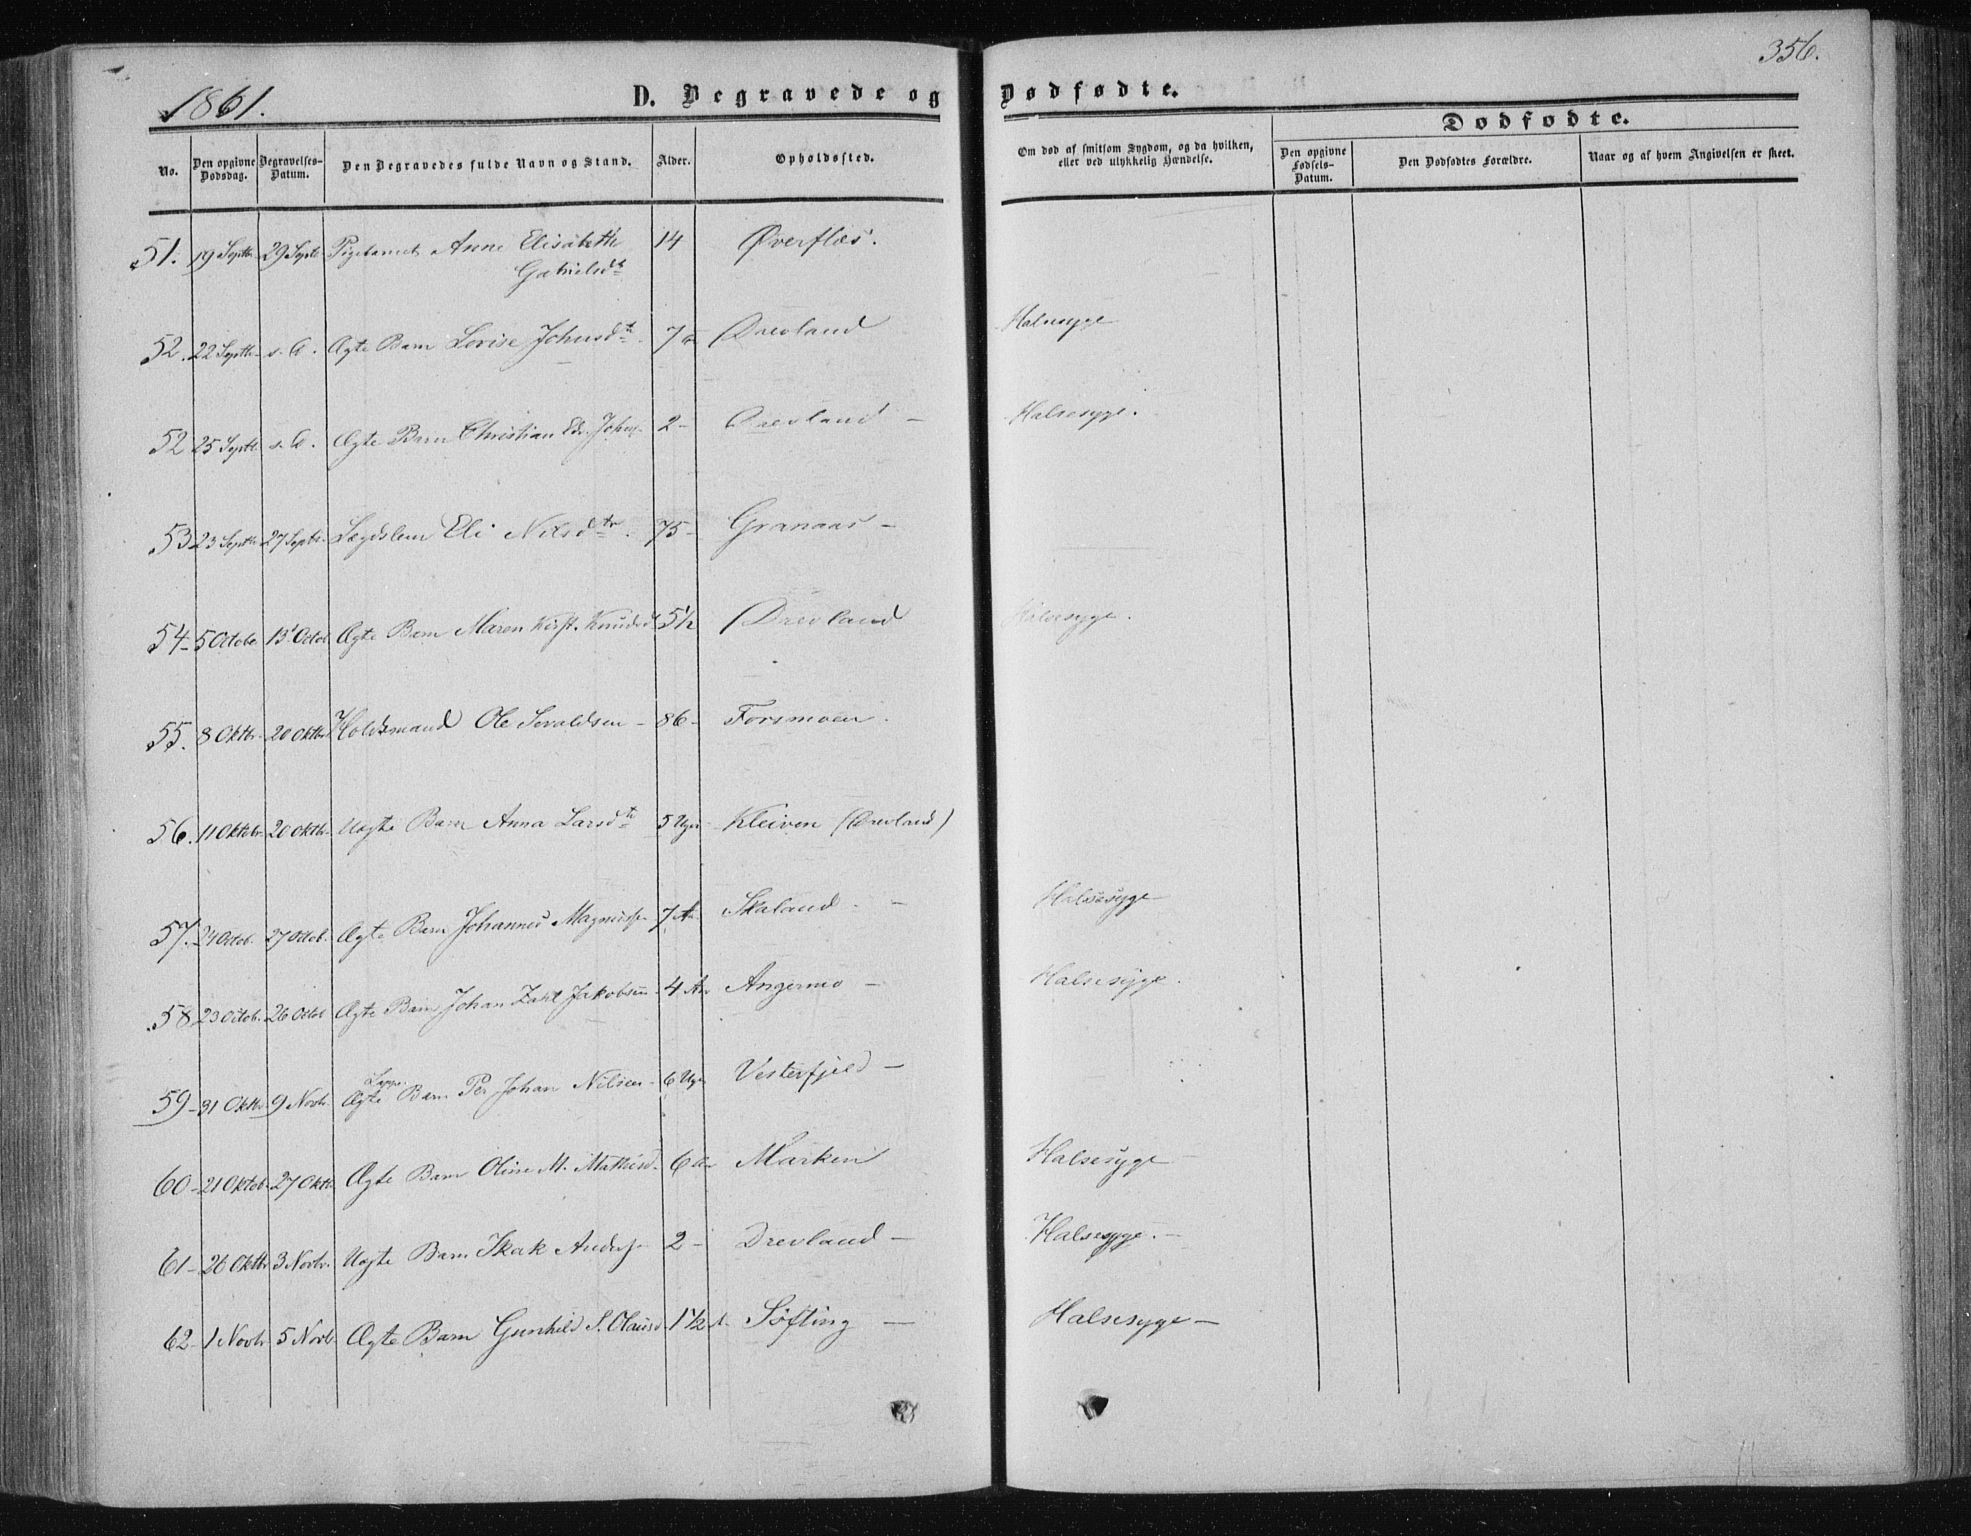 356.
1861.
D. Begravede og Dødfødte.
Dødfødte.
No.
Den opgivne Dødsdag.
Begravelses-Datum.
Den Begravedes fulde Navn og Stand.
Alder.
Opholdssted.
Om død af smitsom Sygdom, og da hvilken, eller ved ulykkelig Hændelse.
Den opgivne Fødsels-Datum.
Den Dødfødtes Forældre.
Naar og af hvem Angivelsen er skeet.
51. 19 Septbr 29 Septb Pigebarnet Anne Elisabeth Gabrielsdtr 14 Øverflæs.
52. 22 Septbr s. A. Ægte Barn Lovise Johnsdtr 7 Drevland Halsesyge
52 25 Septb s. A. Ægte Barn Christian Edv. Johns. 2 - Drevland - Halsesyge.
53 23 Septbr 27 Septbr Lægdslem Eli Nilsdtr. 75 - Granaas -
54 - 5 Octobr 13 Octob Ægte Barn Maren Kirst. Knudsd 5 1/2 Drevland Halsesyge.
55. 8 Oktbr. 20 Oktbr Holdsmand Ole Sivaldsen - 86 - Forsmoen.
56. 11 Oktbr. 20 Oktbr. Uægte Barn Anna Larsdtr 5 Uger Kleiven (Drevland)
57. 24 Octob. 27 Octob. Ægte Barn Johannes Magnuss. 7 Aar Skaland. - Halsesyge
58 23 Octob. 26 Octob Ægte Barn Johan Zahl Jakobsen 4 Aar Angermo - Halsesyge.
59 - 31 Oktbr. 9 Novbr. Lapps. Ægte Barn Per Johan Nilsen - 6 Uger Vesterfjeld -
60 - 21 Oktob. 27 Oktb. Ægte Barn Oline M. Mathisd. 6 Aar Marken Halsesyge -
61 - 26 Oktbr 3 Novbr. Uægte Barn Isak Anders. 2 - Drevland - Halsesyge. -
62 - 1 Novbr 5 Novbr Ægte Barn Gunhild S. Olausd 1 1/2 A. Søfting - Halsesyge -